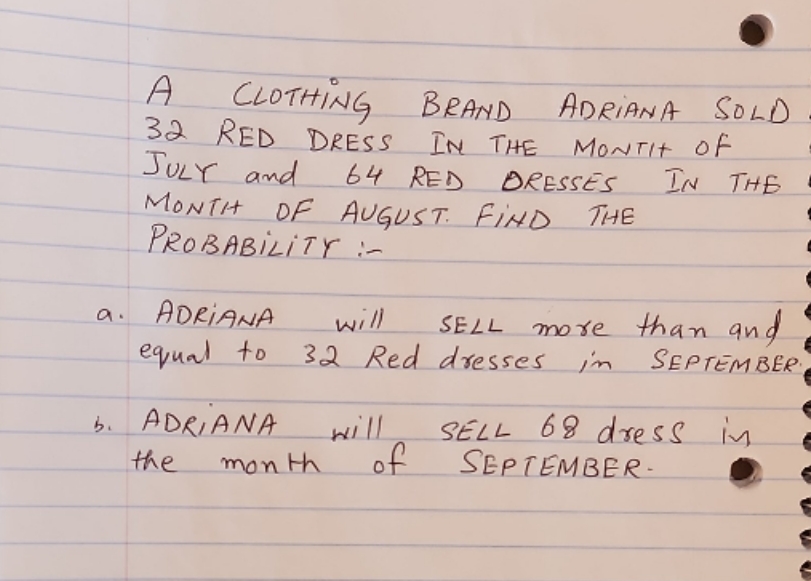 A CLOTHING BRAND ADRIANA SOLD
32 RED DRESS IN THE MONTH OF
JULY and 64 RED DRESSES IN THE
MONTH OF AUGUST. FIND THE
PROBABILITY :-
a. ADRIANA will SELL more than and
equal to 32 Red dresses in SEPTEMBER.
b. ADRIANA will SELL 68 dress in
the month of SEPTEMBER.